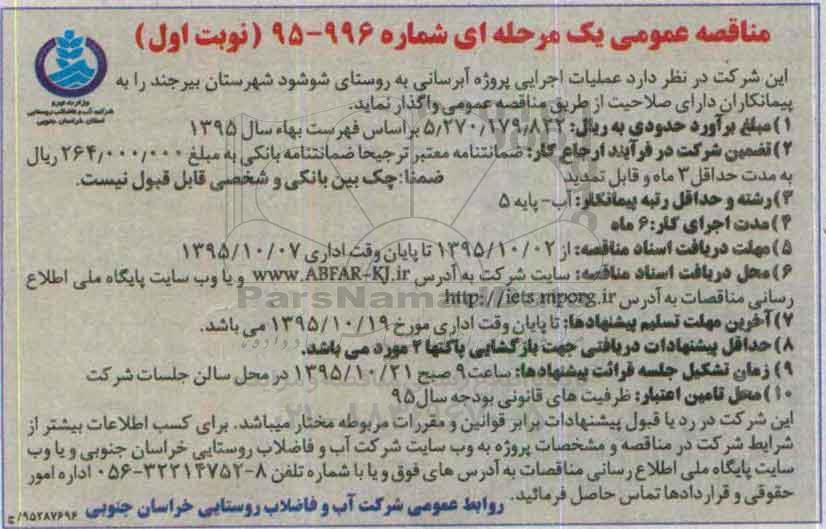 مناقصه عمومی یک مرحله ای شماره ۹۹۶-۹۵ (نوبت اول)
وزارت نیرو
شرکت آب و فاضلاب روستایی
استان خراسان جنوبی
این شرکت در نظر دارد عملیات اجرایی پروژه آبرسانی به روستای شوشود شهرستان بیرجند را به
پیمانکاران دارای صلاحیت از طریق مناقصه عمومی واگذار نماید.
۱) مبلغ برآورد حدودی به ریال: ۵٫۲۷۰٫۱۷۹٫۸۲۲ براساس فهرست بهاء سال ۱۳۹۵
۲) تضمین شرکت در فرآیند ارجاع کار: ضمانتنامه معتبر ترجیحا ضمانتنامه بانکی به مبلغ ۲۶۴٫۰۰۰٫۰۰۰ ریال
به مدت حداقل ۳ ماه و قابل تمدید ضمنا: چک بین بانکی و شخصی قابل قبول نیست.
۳) رشته و حداقل رتبه پیمانکار: آب- پایه ۵
۴) مدت اجرای کار: ۶ ماه
۵) مهلت دریافت اسناد مناقصه: از ۱۳۹۵/۱۰/۰۲ تا پایان وقت اداری ۱۳۹۵/۱۰/۰۷
۶) محل دریافت اسناد مناقصه: سایت شرکت به آدرس www.ABFAR-KJ.ir و یا وب سایت پایگاه ملی اطلاع
رسانی مناقصات به آدرس http://iets.mporg.ir
ParsNamadData
۷) آخرین مهلت تسلیم پیشنهادها: تا پایان وقت اداری مورخ ۱۳۹۵/۱۰/۱۹ می باشد.
۸) حداقل پیشنهادات دریافتی جهت بازگشایی پاکتها ۲ مورد می باشد.
۹) زمان تشکیل جلسه قرائت پیشنهادها: ساعت ۹ صبح ۱۳۹۵/۱۰/۲۱ در محل سالن جلسات شرکت
۱۰) محل تامین اعتبار: ظرفیت های قانونی بودجه سال ۹۵
این شرکت در رد یا قبول پیشنهادات برابر قوانین و مقررات مربوطه مختار میباشد. برای کسب اطلاعات بیشتر از
شرایط شرکت در مناقصه و مشخصات پروژه به وب سایت شرکت آب و فاضلاب روستایی خراسان جنوبی و یا وب
سایت پایگاه ملی اطلاع رسانی مناقصات به آدرس های فوق و یا با شماره تلفن ۸-۳۲۲۱۴۷۵۲-۰۵۶ اداره امور
حقوقی و قراردادها تماس حاصل فرمائید.
روابط عمومی شرکت آب و فاضلاب روستایی خراسان جنوبی
۹۵۲۸۷۶۹۶/ج